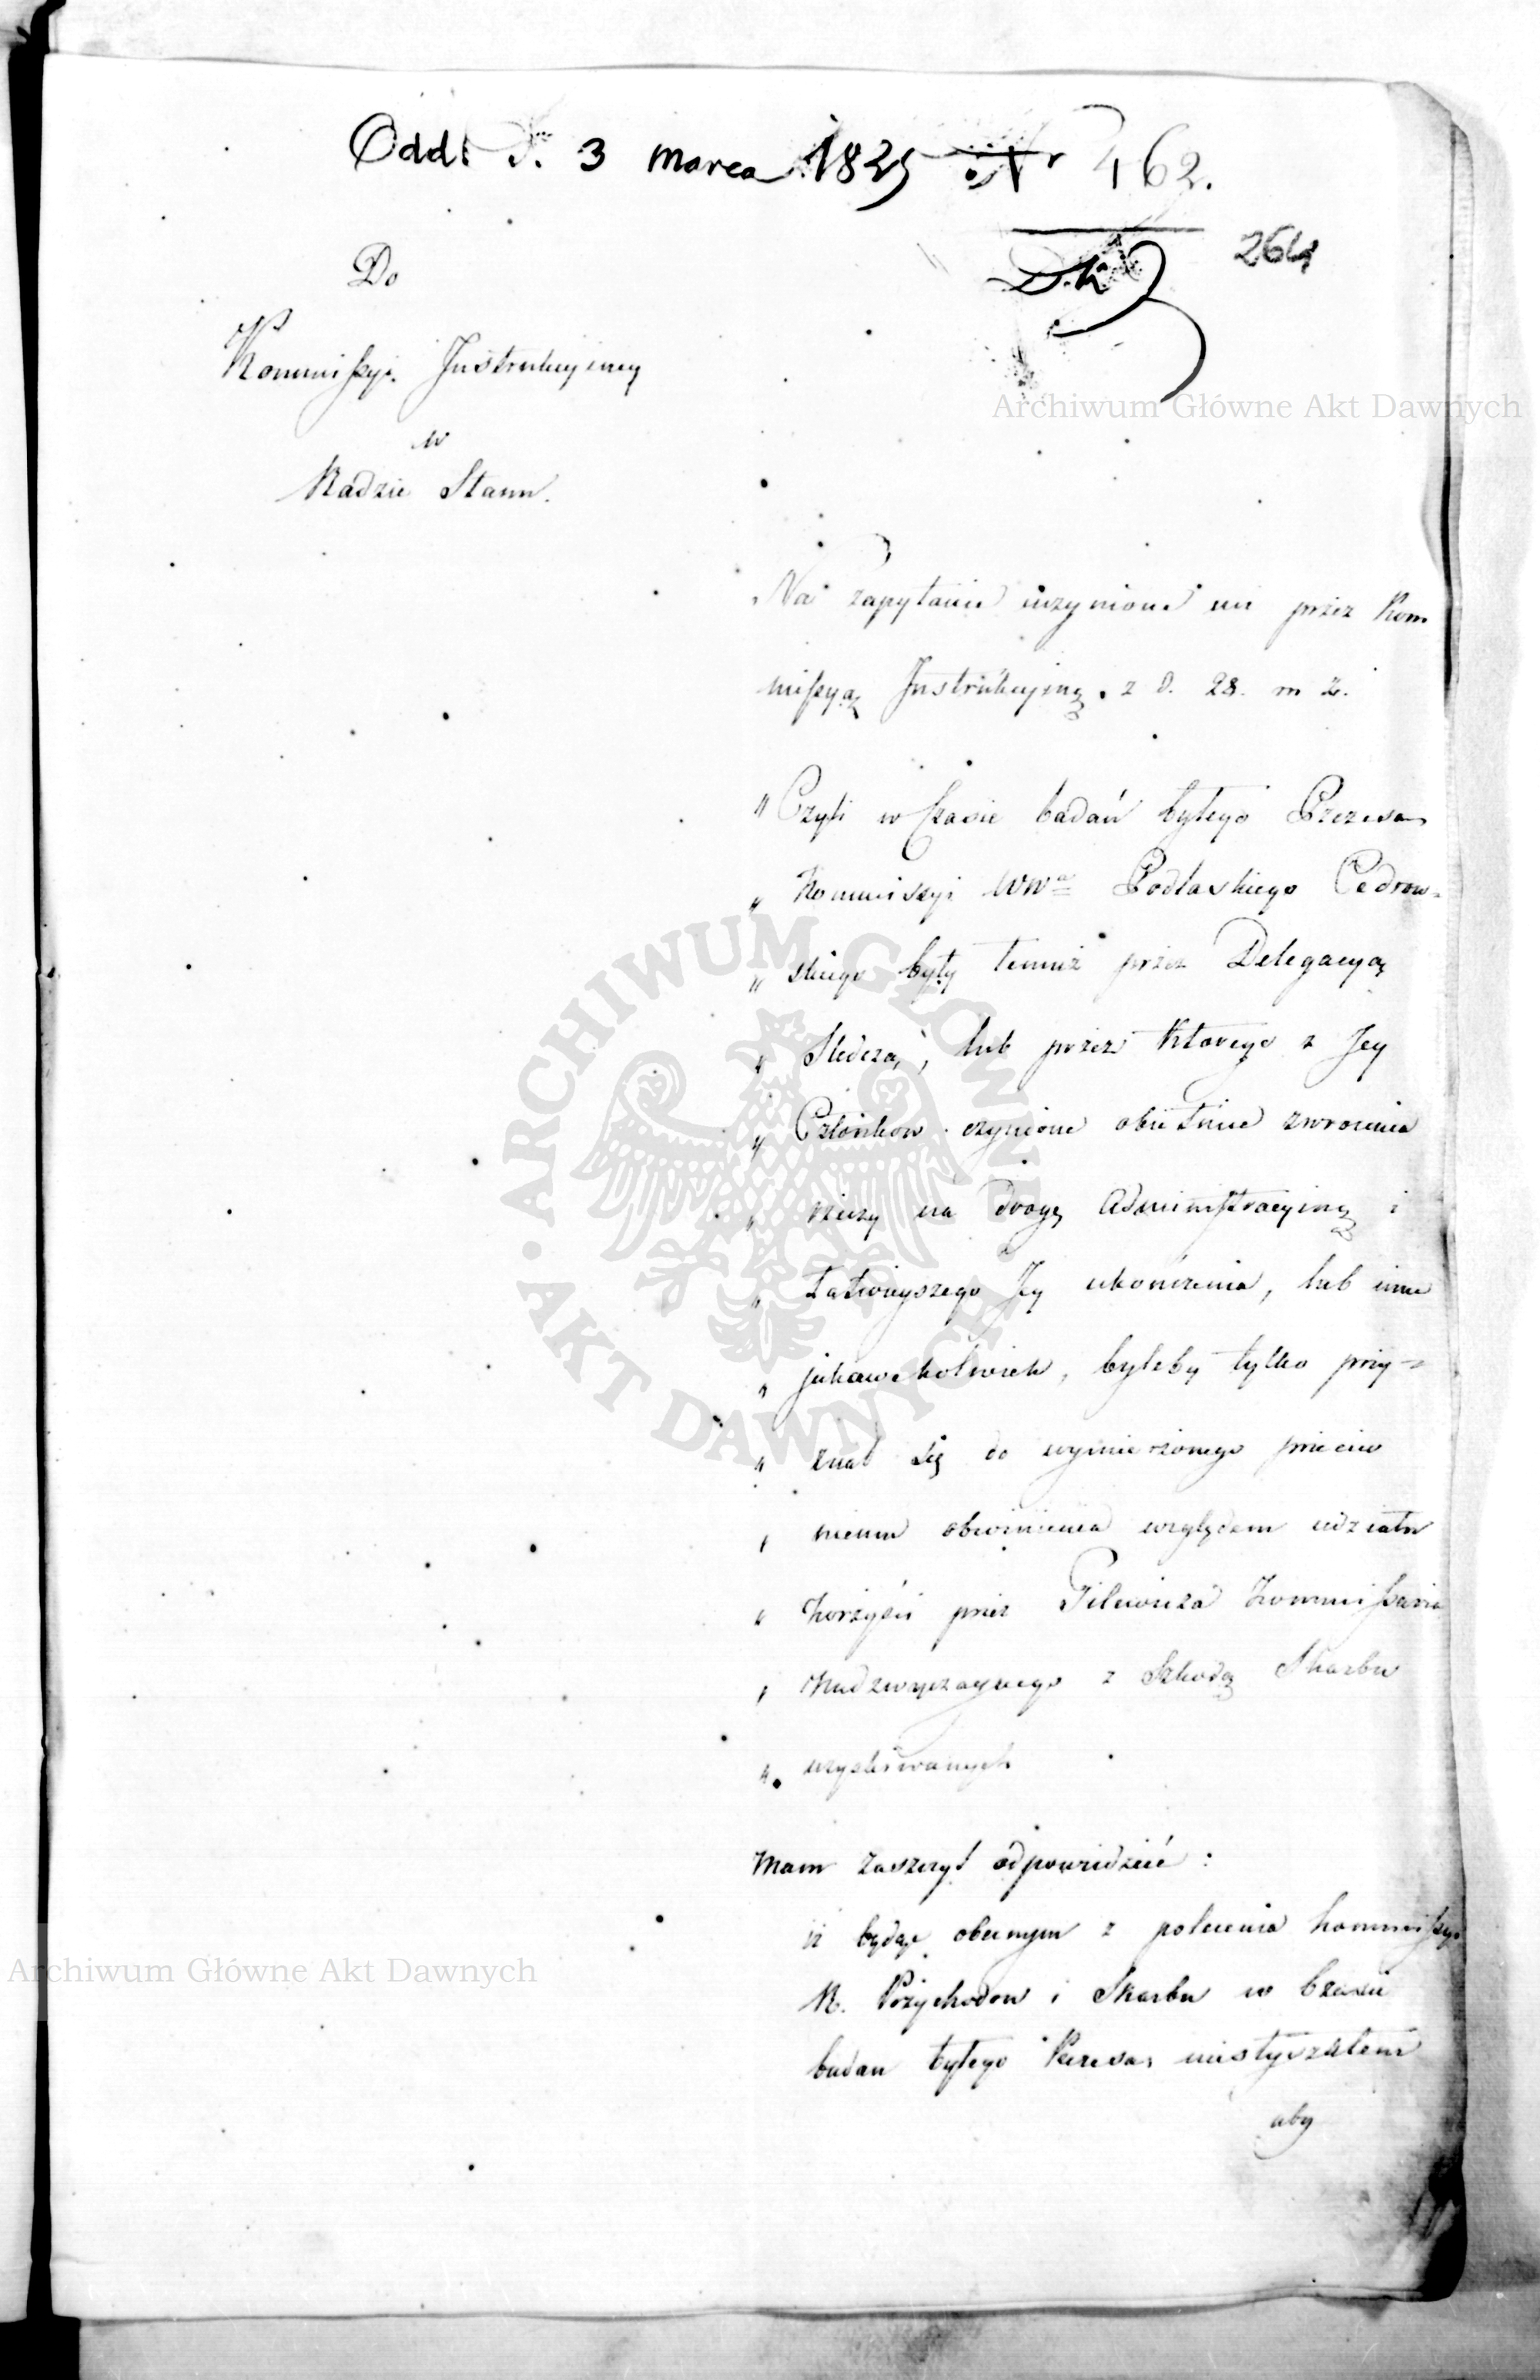 Odd. d. 3 Marca 1825 Nr 462.
264
Do
Kommissyi Instrukcyiney
w
Radzie Stanu.
Na zapytanie uczynione mi przez Kom
missyą Instrukcyiną z d. 28. m z.
„ Czyli w Czasie badań byłego Prezesa
„ Kommissyi Wwa Podlaskiego Cedrow-
„ skiego były temuż przez Delegacyą
„ Śledczą, lub przez Ktorego z Jey
„ Członkow czynione obietnice zwrocenia
„ rzeczy na drogę Administracyiną i
„ łatwieyszego Jey ukończenia, lub inne
„ jakowe kolwiek, byleby tylko przy-
„ znał się do wymierzonego przeciw
„ niemu obwinienia względem udziału
„ korzyści przez Gilewicza Kommissarza
„ Nadzwyczaynego z Szkodą Skarbu
„ uzyskiwanych
Mam zaszczyt odpowiedzieć :
iż będąc obecnym z polecenia Kommissyi
R. Przychodow i Skarbu w Czasie
badan byłego Prezesa, niesłyszałem
aby
Archiwum Główne Akt Dawnych
ARCHIWUM GŁÓWNE AKT DAWNYCH
Archiwum Główne Akt Dawnych